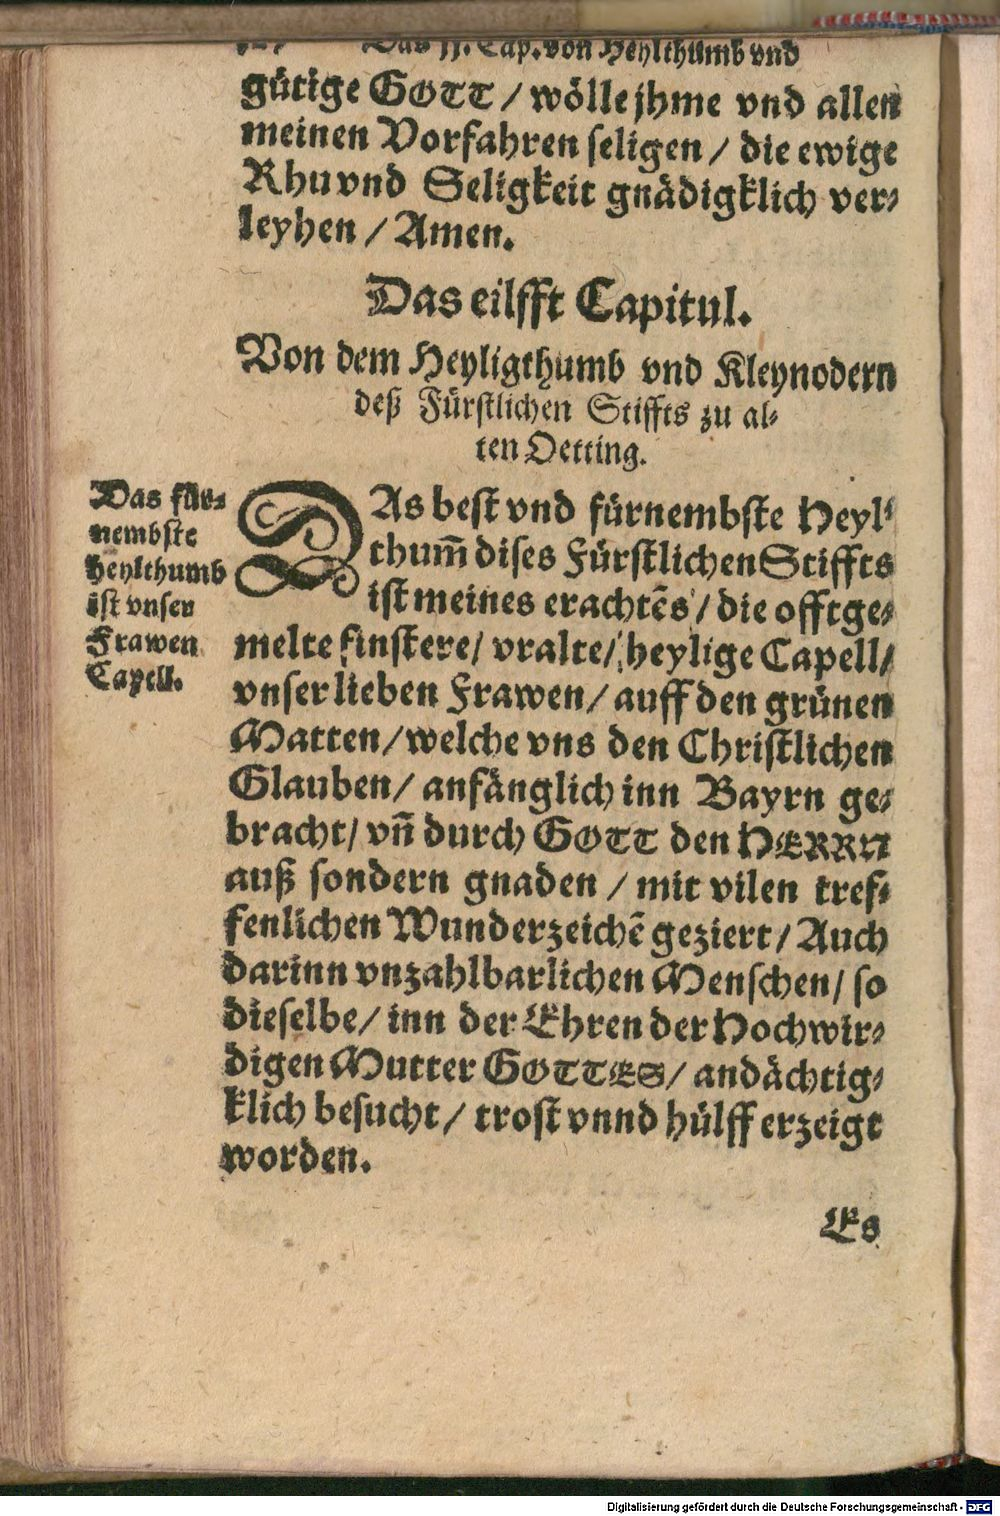 Das 11. Cap. von Heylthumb vnd
gütige GOTT / wölle jhme vnd allen
meinen Vorfahren seligen / die ewige
Rhu vnd Seligkeit gnädigklich ver-
leyhen / Amen.
Das eilfft Capitul.
Von dem Heyligthumb vnd Kleynodern
deß Fürstlichen Stiffts zu al-
ten Oetting.
Das für-
nembste
heylthumb
ist vnser
Frawen
Capell.
DAs best vnd fürnembste Heyl-
thum̃ dises Fürstlichen Stiffts
ist meines erachtẽs / die offtge-
melte finstere / vralte / heylige Capell /
vnser lieben Frawen / auff den grünen
Matten / welche vns den Christlichen
Glauben / anfänglich inn Bayrn ge-
bracht / vñ durch GOTT den HERRN
auß sondern gnaden / mit vilen tref-
fenlichen Wunderzeichẽ geziert / Auch
darinn vnzahlbarlichen Menschen / so
dieselbe / inn der Ehren der Hochwir-
digen Mutter GOTTES / andächtig-
klich besucht / trost vnnd hülff erzeigt
worden.
Es
Digitalisierung gefördert durch die Deutsche Forschungsgemeinschaft - DFG